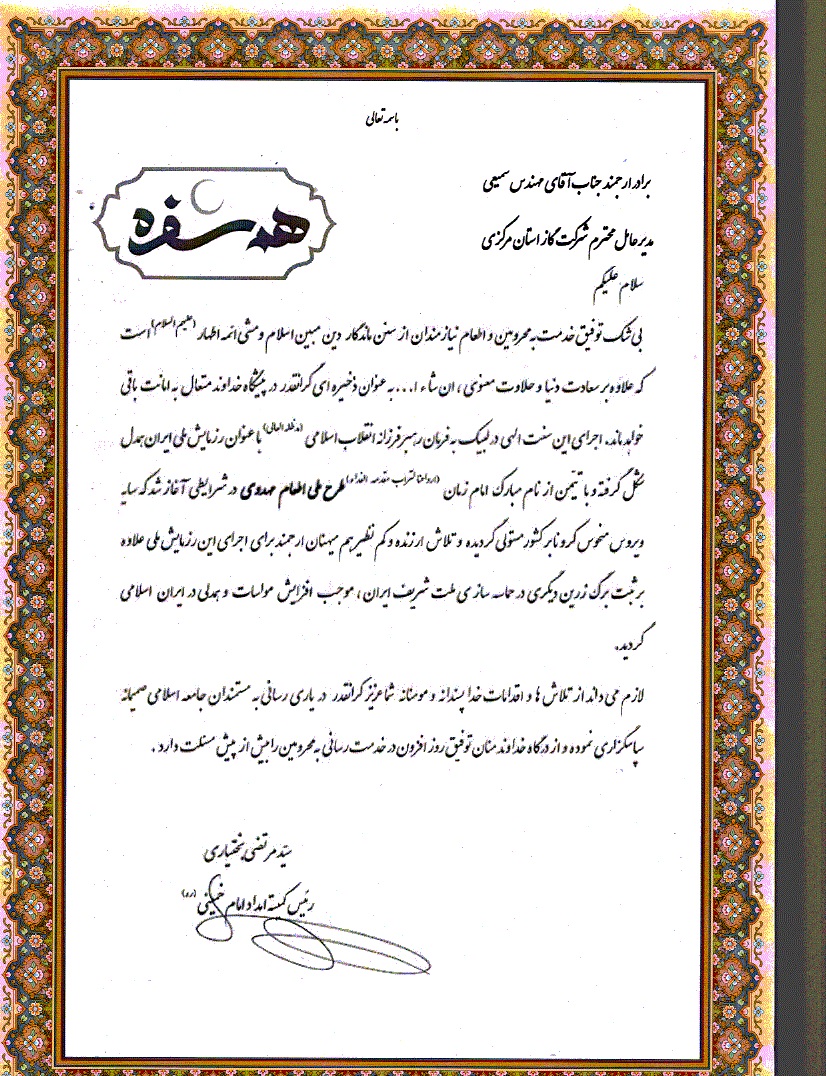 باسمه تعالی
برادر ارجمند جناب آقای مهندس سمیعی
هم سفره
مدیرعامل محترم شرکت گاز استان مرکزی
سلام علیکم
بی شک توفیق خدمت به محرومین و اطعام نیازمندان از سنن ماندگار دین مبین اسلام و مشی ائمه اطهار (علیهم السلام) است
که علاوه بر سعادت دنیا و حلاوت معنوی ، ان شاء ا... به عنوان ذخیره ای گرانقدر در پیشگاه خداوند متعال به امانت باقی
خواهد ماند. اجرای این سنت الهی در لبیک به فرمان رهبر فرزانه انقلاب اسلامی (مدظله العالی) با عنوان رزمایش ملی ایران همدل
شکل گرفته و با تیمّن از نام مبارک امام زمان (ارواحنا لتراب مقدمه الفداء) طرح ملی اطعام مهدوی در شرایطی آغاز شد که سایه
ویروس منحوس کرونا بر کشور مستولی گردیده و تلاش ارزنده و کم نظیر هم میهنان ارجمند برای اجرای این رزمایش ملی علاوه
بر ثبت برگ زرین دیگری در حماسه سازی ملت شریف ایران ، موجب افزایش مواسات و همدلی در ایران اسلامی
گردید.
لازم می داند از تلاش ها و اقدامات خدا پسندانه و مومنانه شما عزیز گرانقدر در یاری رسانی به مستمندان جامعه اسلامی صمیمانه
سپاسگزاری نموده و از درگاه خداوند منان توفیق روز افزون در خدمت رسانی به محرومین را بیش از پیش مسئلت دارد .
سیّد مرتضی بختیاری
رئیس کمیته امداد امام خمینی (ره)